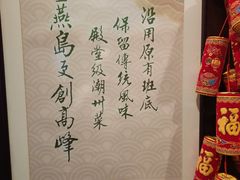 沿用原有班底
保留傳統風味
殿堂級潮州菜
燕島更創高峰
福
福